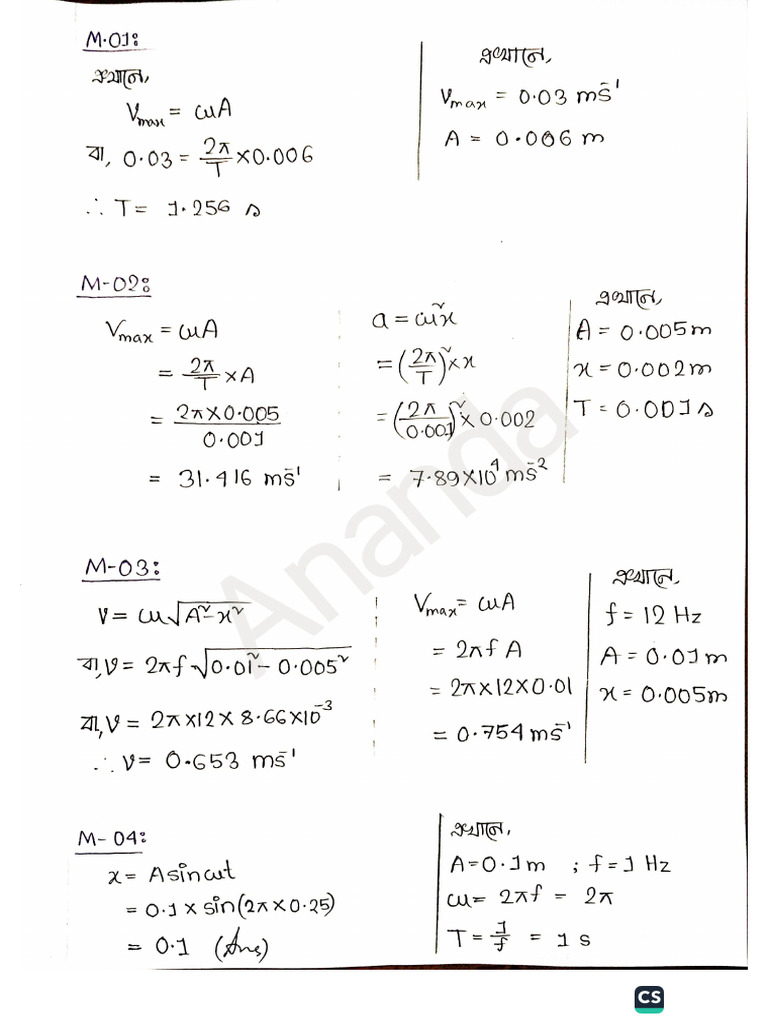 M-01:
এখানে,
V_max = ωA
বা, 0.03 = 2π/T × 0.006
∴ T = 1.256 s
এখানে,
V_max = 0.03 ms⁻¹
A = 0.006 m
M-02:
V_max = ωA
= 2π/T × A
= 2π×0.005/0.001
= 31.416 ms⁻¹
a = ω²x
= (2π/T)² × x
= (2π/0.001)² × 0.002
= 7.89×10⁴ ms⁻²
এখানে,
A = 0.005m
x = 0.002m
T = 0.001 s
M-03:
V = ω√(A²-x²)
বা, V = 2πf √(0.01² - 0.005²)
বা, V = 2π×12 × 8.66×10⁻³
∴ V = 0.653 ms⁻¹
V_max = ωA
= 2πf A
= 2π×12×0.01
= 0.754 ms⁻¹
এখানে,
f = 12 Hz
A = 0.01m
x = 0.005m
M-04:
x = A sin ωt
= 0.1 × sin(2π × 0.25)
= 0.1 (Ans)
এখানে,
A = 0.1m ; f = 1 Hz
ω = 2πf = 2π
T = 1/f = 1 s
Ananda
CS